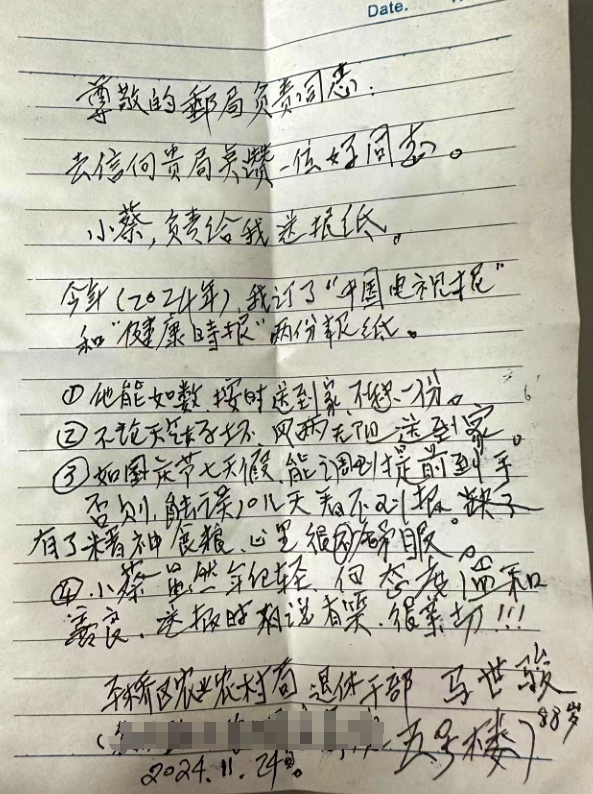 Date.
尊敬的郵局负责同志:
去信向贵局吳讚一位好同志。
小蔡,负责给我送报纸。
今年(2024年),我订了“中国电视报”
和“健康時报”两份报纸。
①他能如数、按时送到家、不缺一份。
②不论天气好坏、风雨无阻送到家。
③如国庆节七天假、能调到提前到手
否则、能误10几天看不到报 缺了
有了精神食粮、心里很舒服。
④小蔡虽然年纪轻、但态度温和
善良、送报时有说有笑、很亲切!!!
平桥区农业农村局 退休干部 马世骏
88岁
五号楼)
2024.11.24